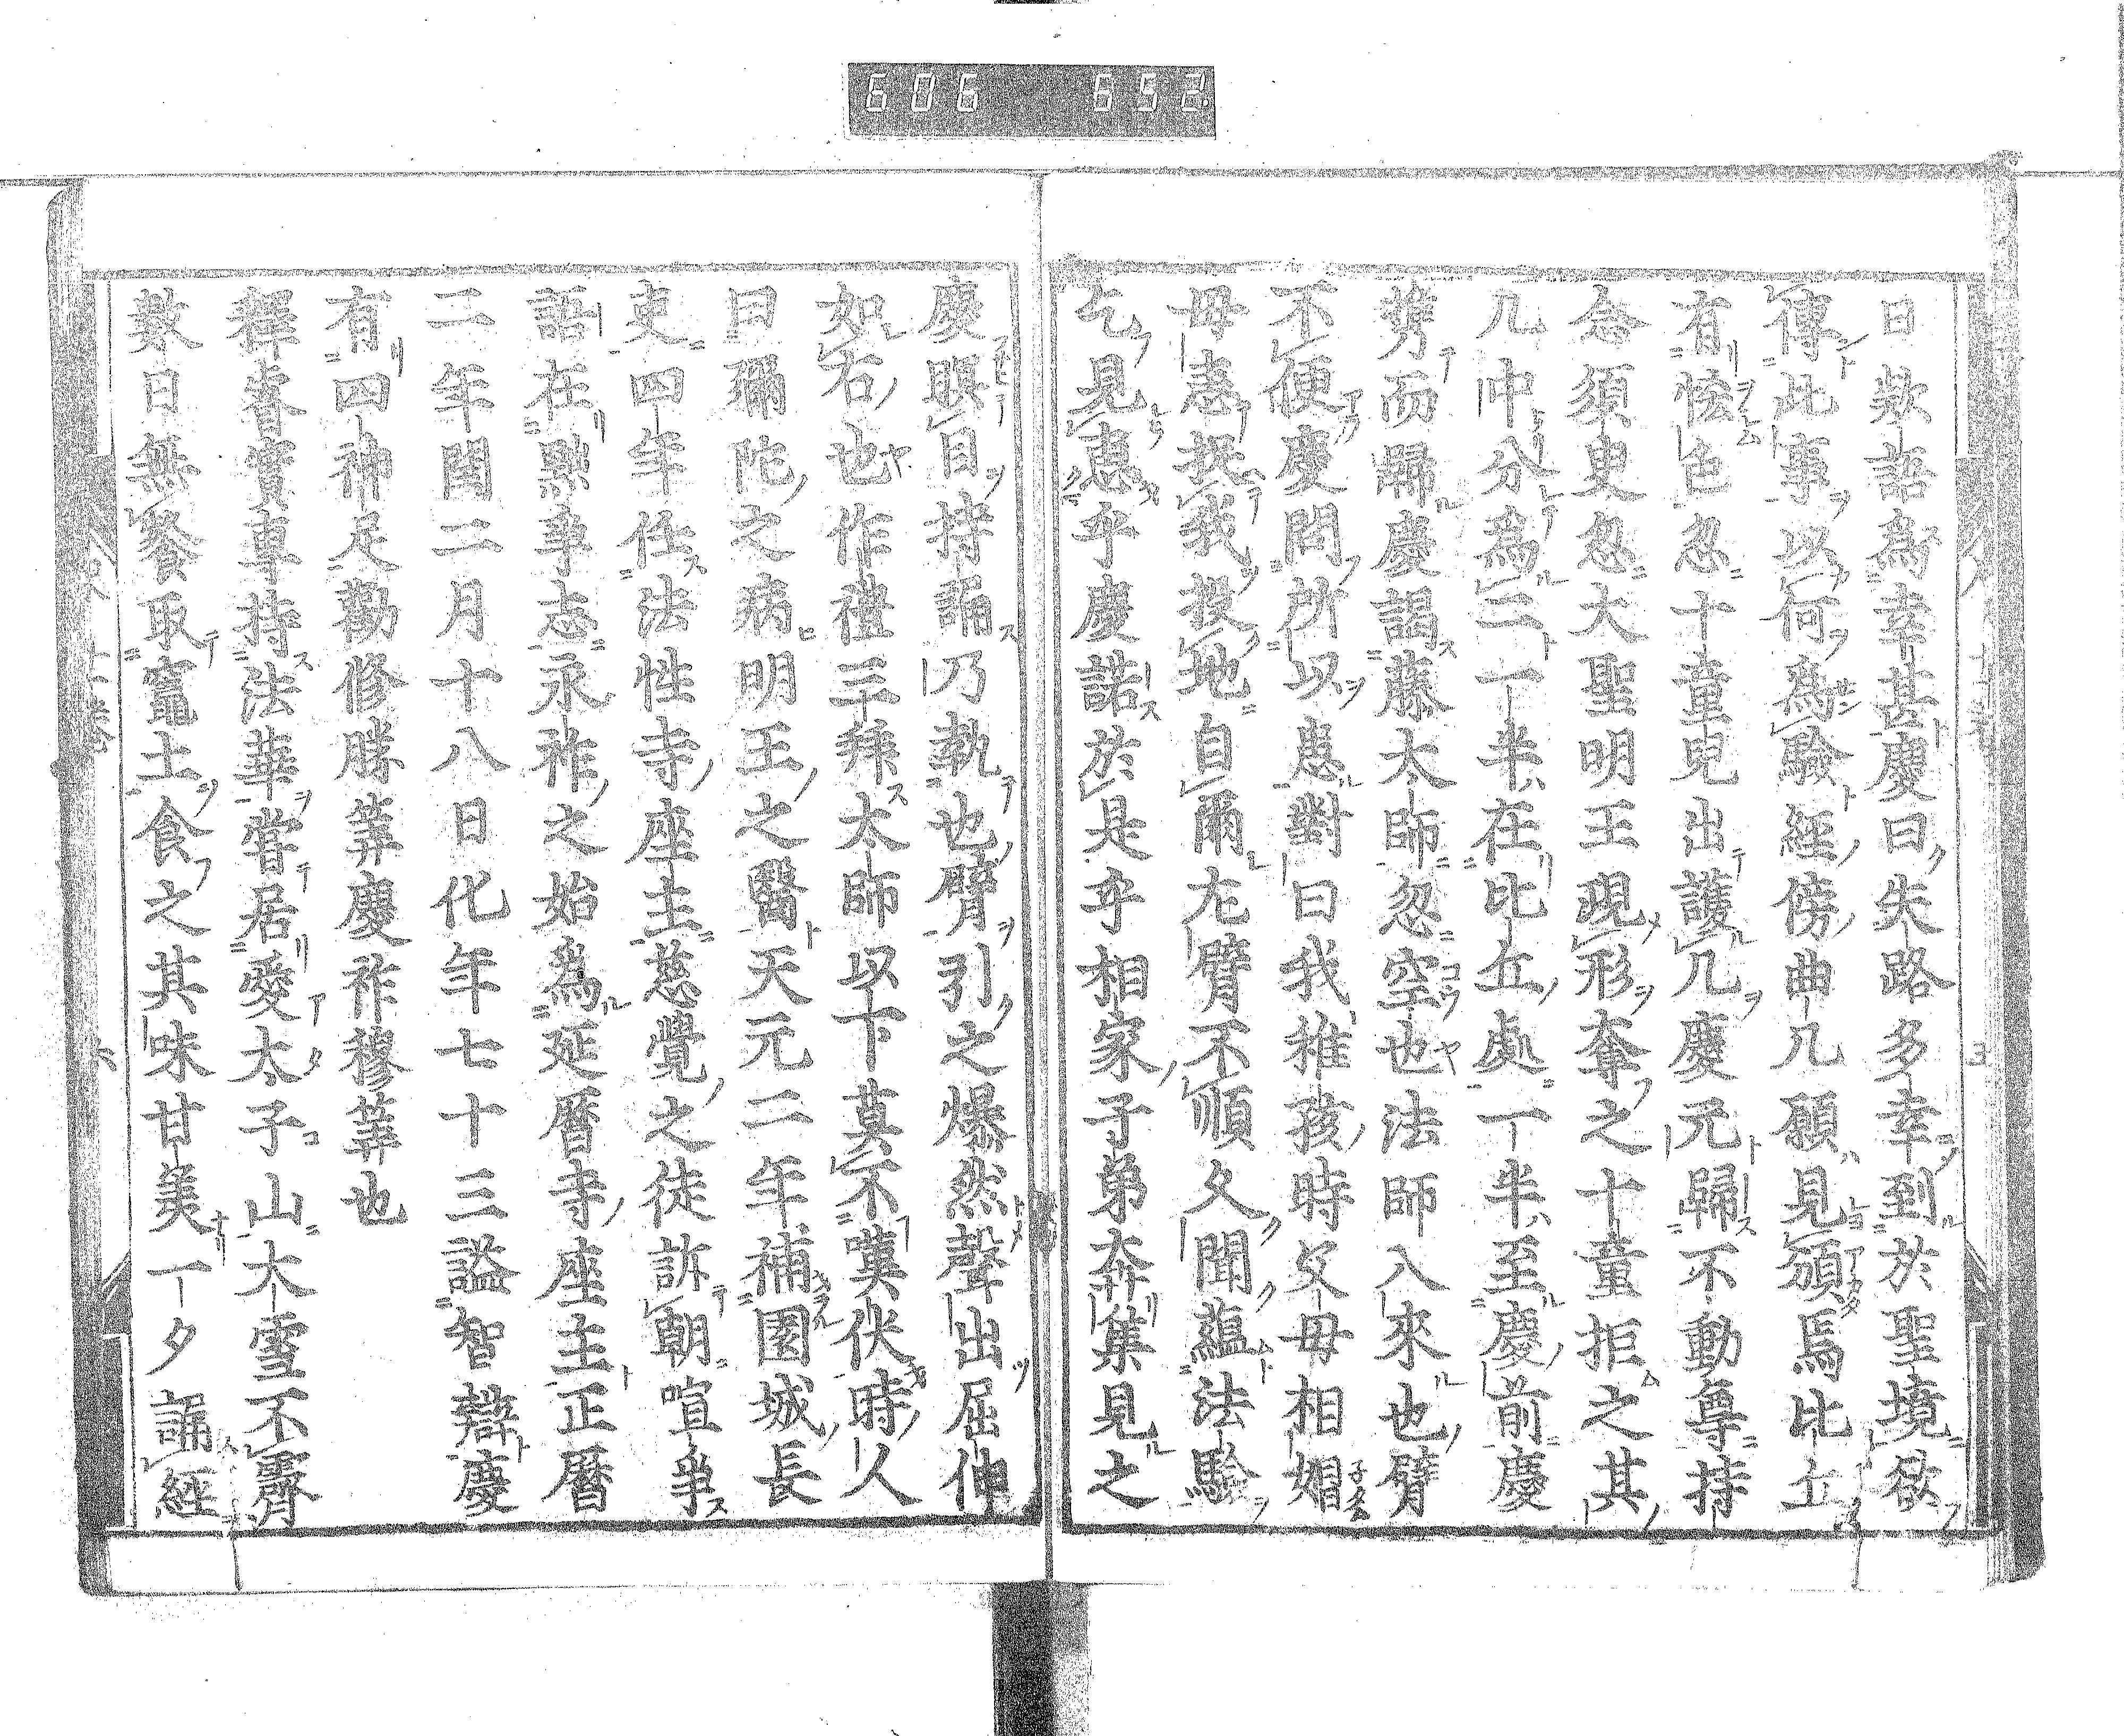 606 652
日欵語爲幸甚慶曰失路多幸到於聖境欲
傳此事以何爲驗經傍曲几願見頒焉比丘
有恡色忽十童兒出護几慶元歸不動尊持
念須臾忽大聖明王現形奪之十童拒之其
几中分爲二一半在比丘處一半至慶前慶
携而歸慶謁藤太師忽空也法師入來也臂
不便慶問所以患對曰我稚孩時父母相媢
母恚投我投地自爾左臂不順久聞蘊法驗
乞見惠乎慶諾於是乎相家子弟奔集見之
慶瞑目持誦乃執也臂引之爆然聲出屈伸
如右也作禮三拜太師以下莫不嘆伏時人
曰彌陀之病明王之醫天元二年補園城長
吏四年任法性寺座主慈覺之徒訴朝喧爭
語在黜爭志永祚之始爲延曆寺座主正曆
二年閏二月十八日化年七十三謚智辯慶
有四神足勸修勝筭慶祚穆筭也
釋睿實專持法華嘗居愛太子山大雪不霽
數日無餐取竈土食之其味甘美一夕誦經